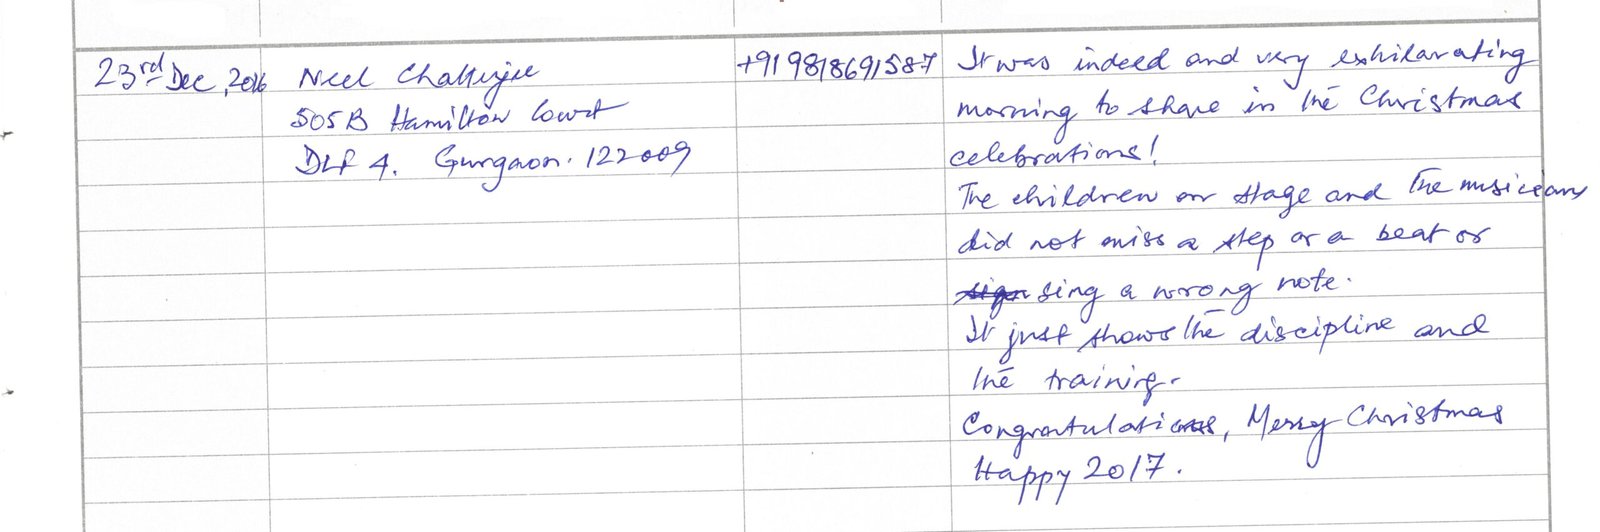 23rd Dec, 2016 Neel Chatterjee +919818691587 It was indeed and very exhilarating
505B Hamilton Court morning to share in the Christmas
DLF 4. Gurgaon. 122009 celebrations!
The children on stage and the musicians
did not miss a step or a beat or
sign sing a wrong note.
It just shows the discipline and
the training.
Congratulations, Merry Christmas
Happy 2017.